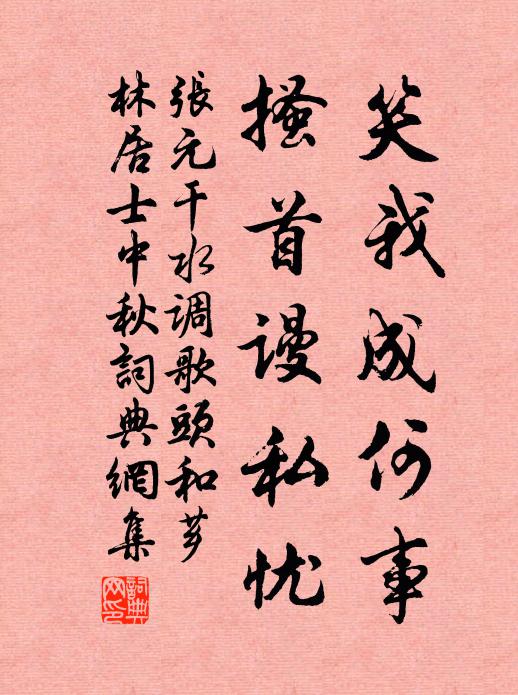 笑我成何事
搔首謾私忧
張元干水调歌頭和芗
林居士中秋詞典網集
詞典網印